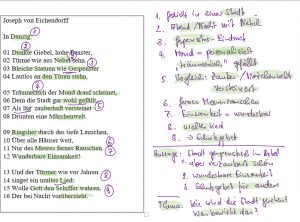 Joseph von Eichendorff
In Danzig
01 Dunkle Giebel, hohe Fenster,
02 Türme wie aus Nebel sehn.
03 Bleiche Statuen wie Gespenster
04 Lautlos an den Türen stehn.
05 Träumerisch der Mond drauf scheinet,
06 Dem die Stadt gar wohl gefällt,
07 Als läg' zauberhaft versteinet
08 Drunten eine Märchenwelt.
09 Ringsher durch das tiefe Lauschen,
10 Über alle Häuser weit,
11 Nur des Meeres fernes Rauschen,
12 Wunderbare Einsamkeit!
13 Und der Türmer wie vor Jahren
14 singet ein uraltes Lied:
15 Wolle Gott den Schiffer wahren,
16 Der bei Nacht vorüberzieht.
1 Gedicht in einer Stadt
2 Abend / Nacht mit Nebel
3 Gespenster- Eindruck
4 Mond = personalisiert
träumerisch, gefällt
5 Vergleich: Zauber / Märchenwelt
versteinert
6 fernes Meeresrauschen
7 Einsamkeit = wunderbar
8 uraltes Lied
9 → Schutzgebet
Aussage: Stadt gespenstisch in Nebel
1 aber verzaubert schön
2 wunderbare Einsamkeit
3 Schutzgebet für andere
Thema: Wie wird die Stadt gesehen?
Was bewirkt das?